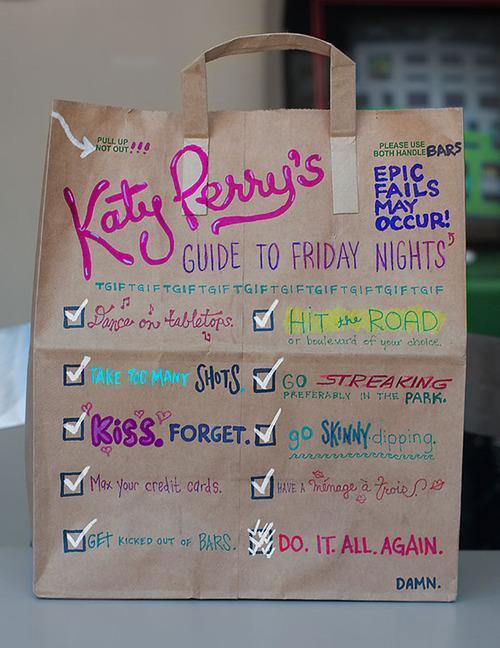 PULL UP
NOT OUT!!!
PLEASE USE
BOTH HANDLE BARS
EPIC
FAILS
MAY
OCCUR!
Katy Perry's
GUIDE TO FRIDAY NIGHTS
TGIFTGIFTGIFTGIFTGIFTGIFTGIFTGIFTGIFTGIF
Dance on tabletops.
HIT the ROAD
or boulevard of your choice.
TAKE TOO MANY SHOTS.
GO STREAKING
PREFERABLY IN THE PARK.
KISS. FORGET.
go SKINNY dipping.
Max your credit cards.
HAVE A ménage à trois!
GET KICKED OUT OF BARS.
DO. IT. ALL. AGAIN.
DAMN.